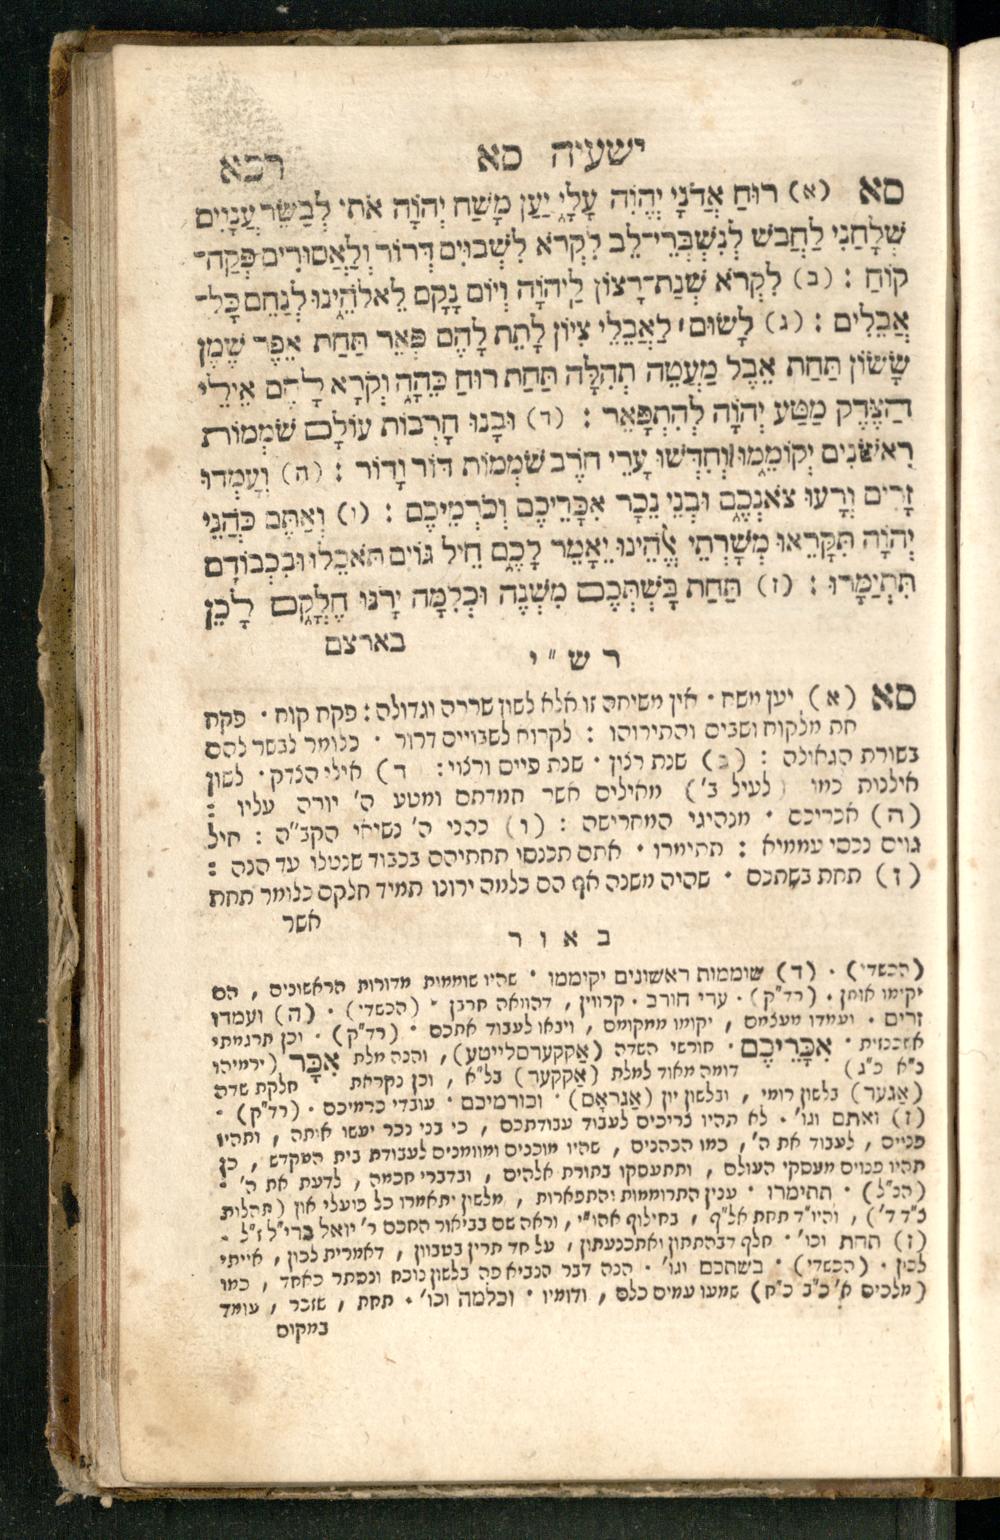 ישעיה סא רכא
סא (א) רוּחַ אֲדֹנָי יֱהֹוִה עָלָי יַעַן מָשַׁח יְהֹוָה אֹתִי לְבַשֵּׂר עֲנָוִים
שְׁלָחַנִי לַחֲבֹשׁ לְנִשְׁבְּרֵי־לֵב לִקְרֹא לִשְׁבוּיִם דְּרוֹר וְלַאֲסוּרִים פְּקַח־
קוֹחַ : (ב) לִקְרֹא שְׁנַת־רָצוֹן לַיהֹוָה וְיוֹם נָקָם לֵאלֹהֵינוּ לְנַחֵם כָּל־
אֲבֵלִים : (ג) לָשׂוּם ׀ לַאֲבֵלֵי צִיּוֹן לָתֵת לָהֶם פְּאֵר תַּחַת אֵפֶר שֶׁמֶן
שָׂשׂוֹן תַּחַת אֵבֶל מַעֲטֵה תְהִלָּה תַּחַת רוּחַ כֵּהָה וְקֹרָא לָהֶם אֵילֵי
הַצֶּדֶק מַטַּע יְהֹוָה לְהִתְפָּאֵר : (ד) וּבָנוּ חָרְבוֹת עוֹלָם שֹׁמְמוֹת
רִאשֹׁנִים יְקוֹמֵמוּ וְחִדְּשׁוּ עָרֵי חֹרֶב שֹׁמְמוֹת דּוֹר וָדוֹר : (ה) וְעָמְדוּ
זָרִים וְרָעוּ צֹאנְכֶם וּבְנֵי נֵכָר אִכָּרֵיכֶם וְכֹרְמֵיכֶם : (ו) וְאַתֶּם כֹּהֲנֵי
יְהֹוָה תִּקָּרֵאוּ מְשָׁרְתֵי אֱלֹהֵינוּ יֵאָמֵר לָכֶם חֵיל גּוֹיִם תֹּאכֵלוּ וּבִכְבוֹדָם
תִּתְיַמָּרוּ : (ז) תַּחַת בָּשְׁתְּכֶם מִשְׁנֶה וּכְלִמָּה יָרֹנּוּ חֶלְקָם לָכֵן
בארצם
רש"י
סא (א) יען משח · אין משיחה זו אלא לשון שררה וגדולה : פקח קוח · פקח
חת מלקוח ושבים והתירוהו : לקרוח לשבויים דרור · כלומר לבשר להם
בשורת הגאולה : (ב) שנת רצון · שנת פיוס ורצוי : ד) אילי הצדק · לשון
אילנות כמו (לעיל ב') מאילים אשר חמדתם ומטע ה' יורה עליו :
(ה) אכריכם · מנהיגי המחרישה : (ו) כהני ה' נשיאי הקב"ה : חיל
גוים נכסי עממיא : תתימרו · אתם תכנסו תחתיהם בכבוד שנטלו עד הנה :
(ז) תחת בשתכם · שהיה משנה אף הם כלמה ירונו תמיד חלקם כלומר תחת
אשר
באור
(הכשדי) · (ד) שוממות ראשונים יקוממו · שהיו שוממות מדורות הראשונים , הם
יקימו אותן · (רד"ק) · ערי חורב · קרווין , דהוואה חרבן · (הכשדי) · (ה) ועמדו
זרים · ועמדו מעצמם , יקומו ממקומם , ויבאו לעבוד אתכם · (רד"ק) · וכן תרגמתי
אשכנזית · אִכָּרֵיכֶם · חורשי השדה (אַקקערסלייטע) , והנה מלת אִכָּר (ירמיהו
נ"א כ"ג) דומה מאוד למלת (אַקקער) בל"א , וכן נקראת חלקת שדה
(אַגער) בלשון רומי , ובלשון יון (אַגראָס) · וכורמיכם · עובדי כרמיכם · (רד"ק) ·
(ז) ואתם וגו' · לא תהיו צריכים לעבוד עבודתכם , כי בני נכר יעשו אותה , ותהיו
פנויים , לעבוד את ה' , כמו הכהנים , שהיו מוכנים ומזומנים לעבודת בית המקדש , כן
תהיו פנוים מעסקי העולם , ותתעסקו בתורת אלהים , ובדברי חכמה , לדעת את ה' ·
(הנ"ל) · תתימרו · ענין התרוממות והתפארות , מלשון יתאמרו כל פועלי און (תהלות
צ"ד ד') , והיו"ד תחת אל"ף , בחילוף אהו"י , וראה שם בביאור החכם ר' יואל ברי"ל ז"ל ·
(ז) תחת וכו' · חלף דבהתתון ואתכנעתון , על חד תרין בטבוון , דאמרית לכון , אייתי
לכון · (הכשדי) · בשתכם וגו' · הנה דבר הנביא פה בלשון נוכח ונסתר כאחד , כמו
(מלכים א' כ"ב כ"ח) שמעו עמים כלם , ודומיו · וכלמה וכו' · תחת , שזכר , עומד
במקום